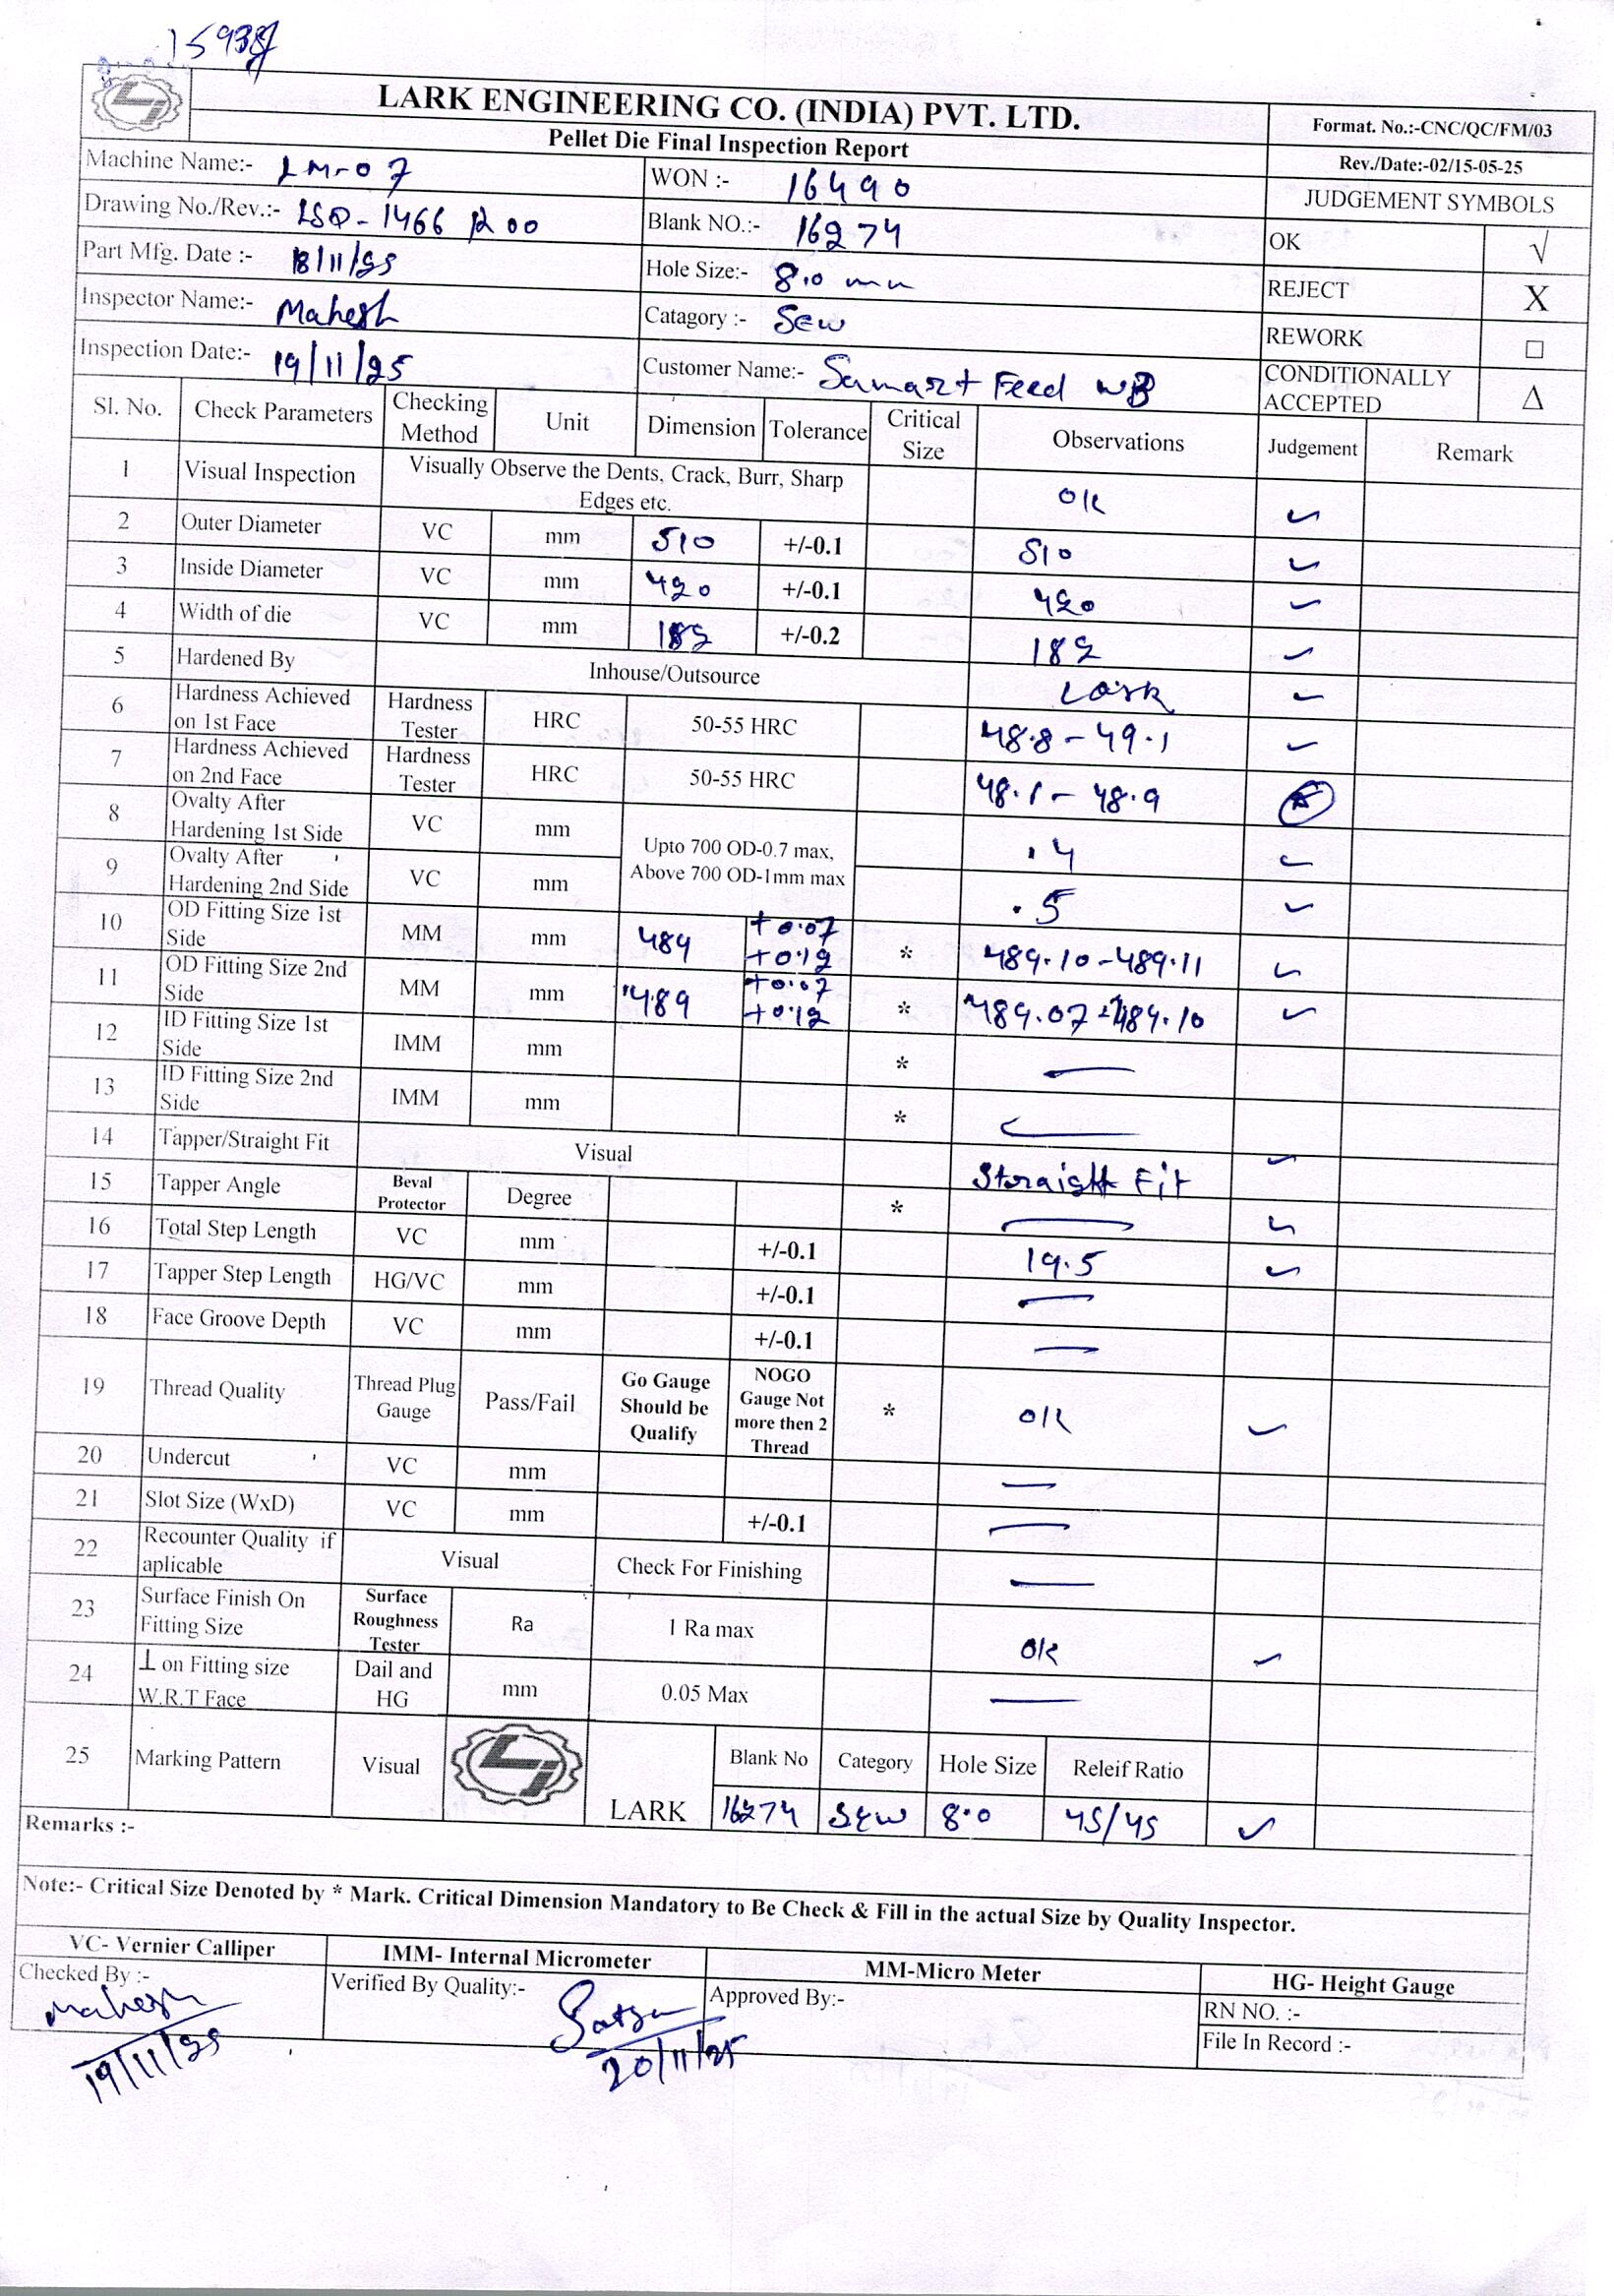 15938
LARK ENGINEERING CO. (INDIA) PVT. LTD.
Pellet Die Final Inspection Report
Format. No.:-CNC/QC/FM/03
Rev./Date:-02/15-05-25
Machine Name:- LM-07
WON :- 16490
JUDGEMENT SYMBOLS
Drawing No./Rev.:- LSD-1466 R00
Blank NO.:- 16274
OK √
Part Mfg. Date :- 18/11/25
Hole Size:- 8.0 mm
REJECT X
Inspector Name:- Mahesh
Catagory :- SEW
REWORK □
Inspection Date:- 19/11/25
Customer Name:- Samart Feed WB
CONDITIONALLY ACCEPTED Δ
Sl. No. Check Parameters Checking Method Unit Dimension Tolerance Critical Size Observations Judgement Remark
1 Visual Inspection Visually Observe the Dents, Crack, Burr, Sharp Edges etc. OK ✓
2 Outer Diameter VC mm 510 +/-0.1 510 ✓
3 Inside Diameter VC mm 420 +/-0.1 420 ✓
4 Width of die VC mm 182 +/-0.2 182 ✓
5 Hardened By Inhouse/Outsource Lark ✓
6 Hardness Achieved on 1st Face Hardness Tester HRC 50-55 HRC 48.8-49.1 ✓
7 Hardness Achieved on 2nd Face Hardness Tester HRC 50-55 HRC 48.1-48.9
8 Ovalty After Hardening 1st Side VC mm Upto 700 OD-0.7 max, Above 700 OD-1mm max .4 ✓
9 Ovalty After Hardening 2nd Side VC mm .5 ✓
10 OD Fitting Size 1st Side MM mm 489 +0.07 +0.12 * 489.10-489.11 ✓
11 OD Fitting Size 2nd Side MM mm 489 +0.07 +0.12 * 489.07-489.10 ✓
12 ID Fitting Size 1st Side IMM mm * —
13 ID Fitting Size 2nd Side IMM mm * —
14 Tapper/Straight Fit Visual Straight Fit ✓
15 Tapper Angle Beval Protector Degree * — ✓
16 Total Step Length VC mm +/-0.1 19.5 ✓
17 Tapper Step Length HG/VC mm +/-0.1 —
18 Face Groove Depth VC mm +/-0.1 —
19 Thread Quality Thread Plug Gauge Pass/Fail Go Gauge Should be Qualify NOGO Gauge Not more then 2 Thread * OK ✓
20 Undercut VC mm —
21 Slot Size (WxD) VC mm +/-0.1 —
22 Recounter Quality if aplicable Visual Check For Finishing —
23 Surface Finish On Fitting Size Surface Roughness Tester Ra 1 Ra max OK ✓
24 ⊥ on Fitting size W.R.T Face Dail and HG mm 0.05 Max —
25 Marking Pattern Visual LARK Blank No Category Hole Size Releif Ratio
16274 SEW 8.0 45/45 ✓
Remarks :-
Note:- Critical Size Denoted by * Mark. Critical Dimension Mandatory to Be Check & Fill in the actual Size by Quality Inspector.
VC- Vernier Calliper IMM- Internal Micrometer MM-Micro Meter HG- Height Gauge
Checked By :- Mahesh 19/11/25
Verified By Quality:- 20/11/25
Approved By:-
RN NO. :-
File In Record :-